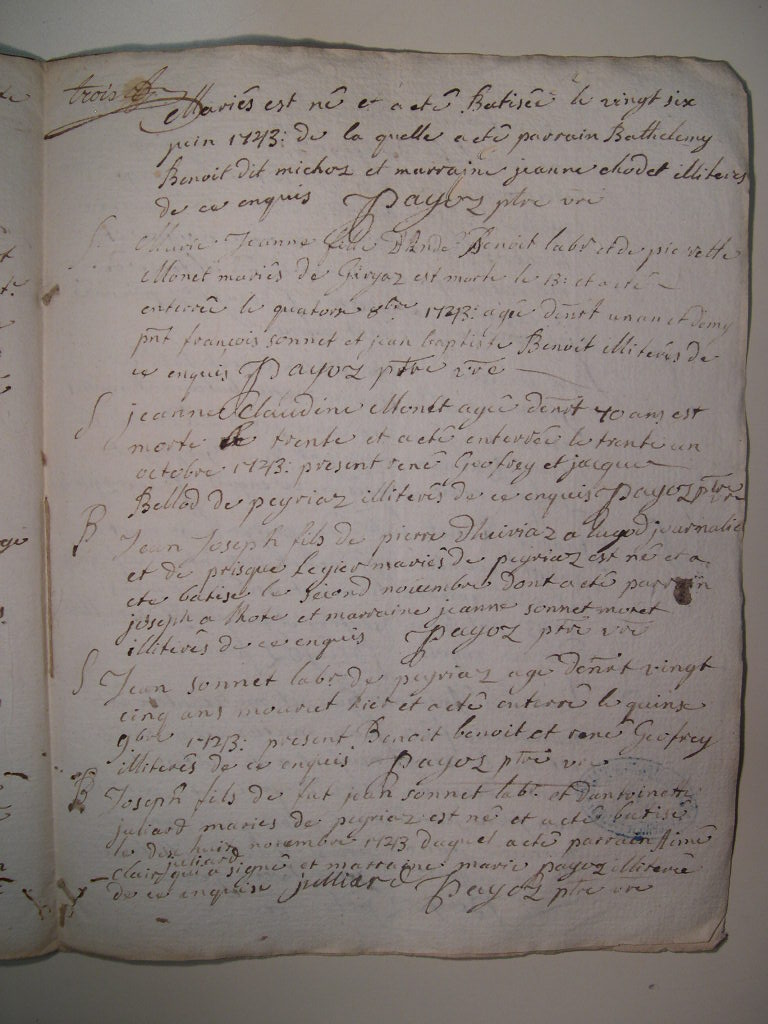 trois
Mariés est né et a eté Batiseé le vingt six
juin 1743: de la quelle a eté parrain Bathelemy
Benoit dit michoz et marraine jeanne chodet illiterés
de ce enquis Payoz ptre vre
S Marie Jeanne fille D'Ande Benoit labr et de pierrette
Monet mariés de Giryaz est morte le 13: et a eté
enterreé le quatorze 8bre 1743: ageé d'enrt un an et demy
pnt françois sonnet et jean baptiste Benoit illiterés de
ce enquis Payoz ptre vre
S jeanne Claudine Monet ageé d'enrt 40 ans est
morte le trente et a eté enterreé le trente un
octobre 1743: present rené Geofrey et jacque
Bellod de peyriaz illiterés de ce enquis Payoz ptre vre
B Jean Joseph fils de pierre journalie
et de prisque Legier mariés de peyriaz est né et a
eté batisé le second novembre dont a eté parrain
joseph a Mote et marraine jeanne sonnet moret
illiterés de ce enquis Payoz ptre vre
S Jean sonnet labr de peyriaz agé d'enrt vingt
cinq ans mourut hier et a eté enterré le quinze
9bre 1743: present Benoit benoit et rené Geofrey
illiterés de ce enquis Payoz ptre vre
B Joseph fils de fut jean sonnet labr et d'antoinette
juliard mariés de peyriaz est né et a eté batisé
le dix huit novembre 1743 duquel a eté parrain Aimé
juliard
clair qui a signé et marraine marie payoz illitereé
de ce enquise julliard Payoz ptre vre